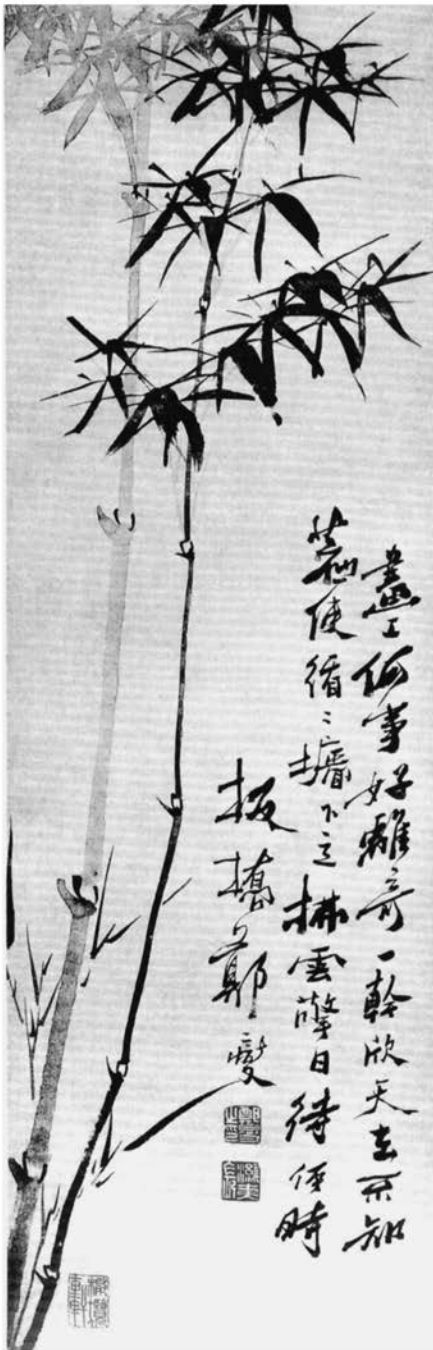 畫工何事好離奇一幹掀天去不知
若使循〻墻下立拂雲擎日待何時
板橋鄭燮
鄭燮之印